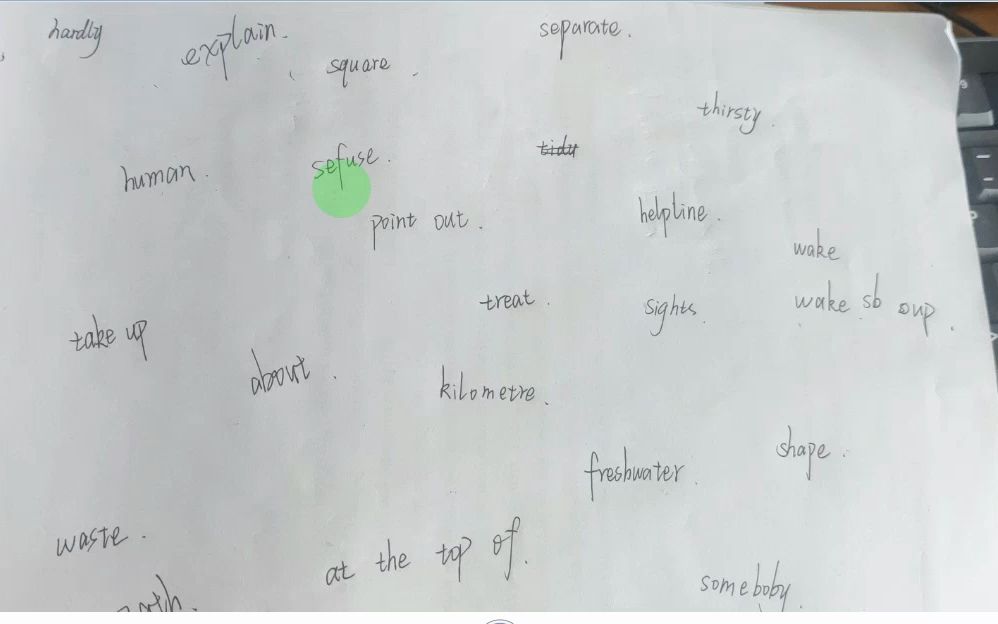 hardly
explain.
separate.
square.
thirsty.
human.
sefuse.
tidy
point out.
helpline.
wake
treat.
sights.
wake sb oup.
take up
about.
kilometre.
shape.
freshwater.
waste.
at the top of.
someboby.